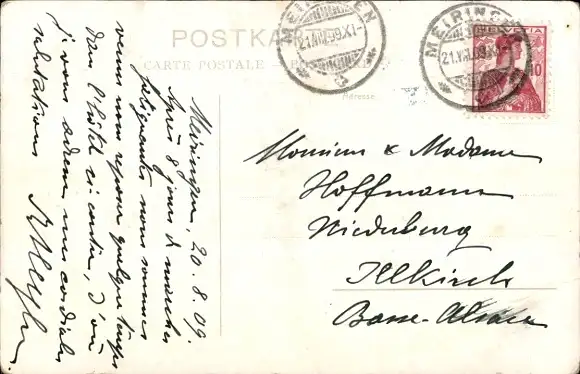 POSTKARTE
CARTE POSTALE
MEIRINGEN
21.VIII.09.XI-
MEIRINGEN
21.VIII.09.XI
HELVETIA
10
Adresse
Meiringen, 20.8.09.
Après 8 jours de marches
fatiguantes nous sommes
venus nous reposer quelque temps
dans l'hôtel ci contre, d'où
je vous adresse mes cordiales
salutations
Monsieur & Madame
Hoffmann
Niederburg
Illkirch
Basse-Alsace